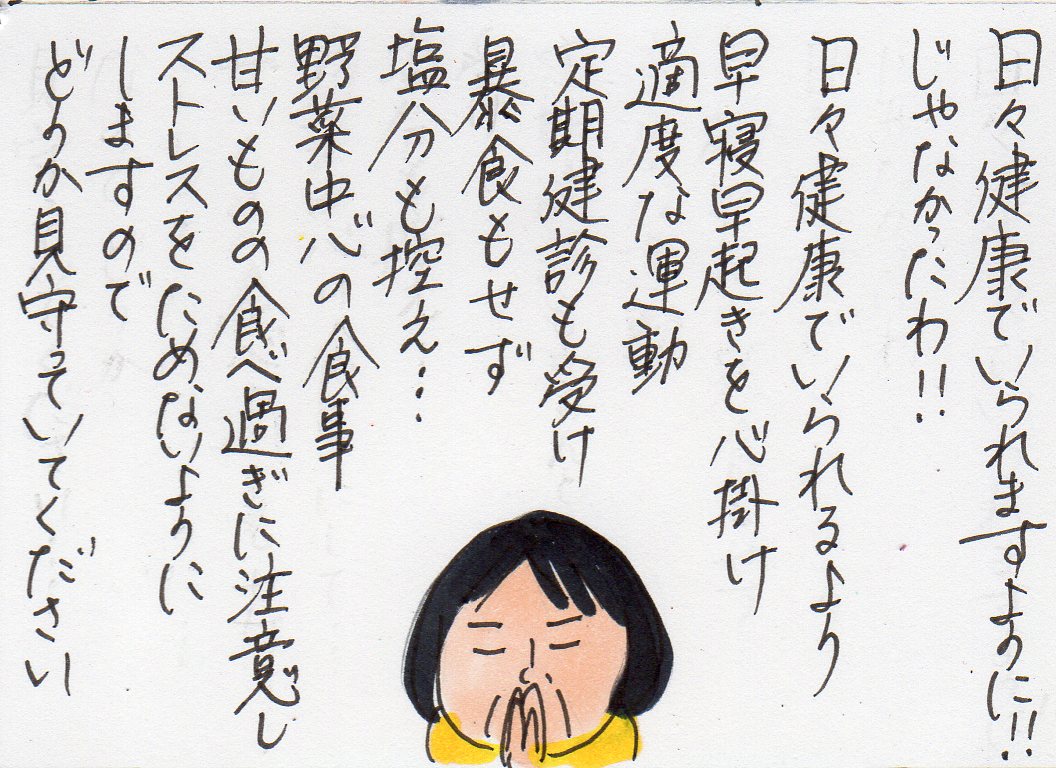 日々健康でいられますように!!
じゃなかったわ!!
日々健康でいられるよう
早寝早起きを心掛け
適度な運動
定期健診も受け
暴食もせず
塩分も控え…
野菜中心の食事
甘いものの食べ過ぎに注意し
ストレスをためないように
しますので
どうか見守っていてください